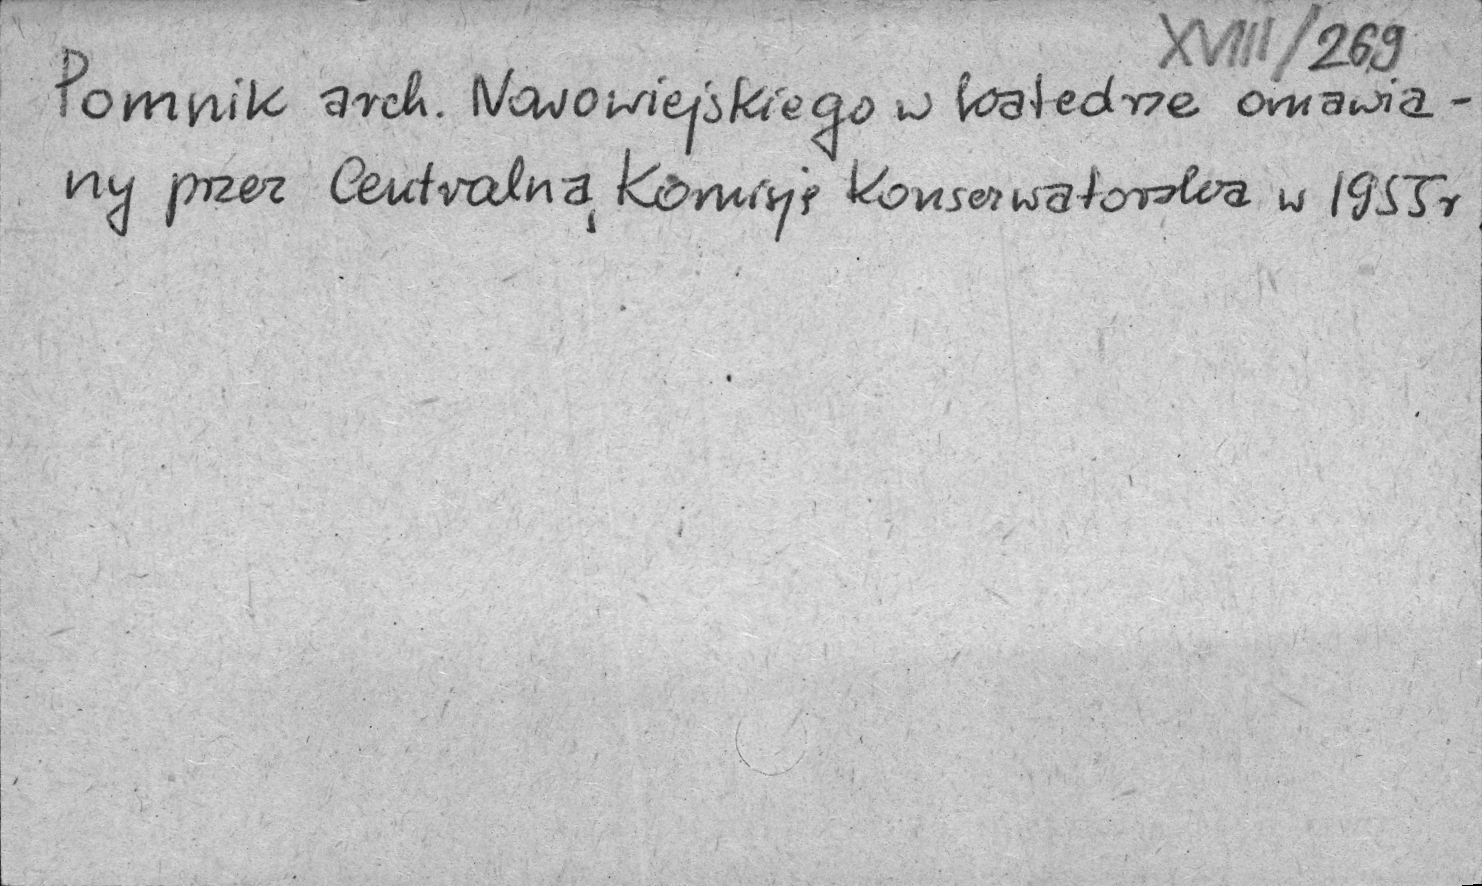 XVIII/269
Pomnik arch. Nowowiejskiego w katedrze omawia-
ny przez Centralną Komisję Konserwatorska w 1955 r